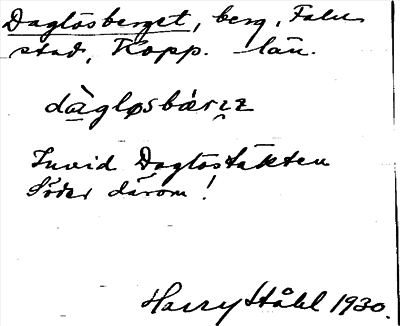 Daglösberget, berg, Falu
stad, Kopp. län.
dàgløsbærɪz
Invid Daglöstäkten
Söder därom!
Harry Ståhl 1930.